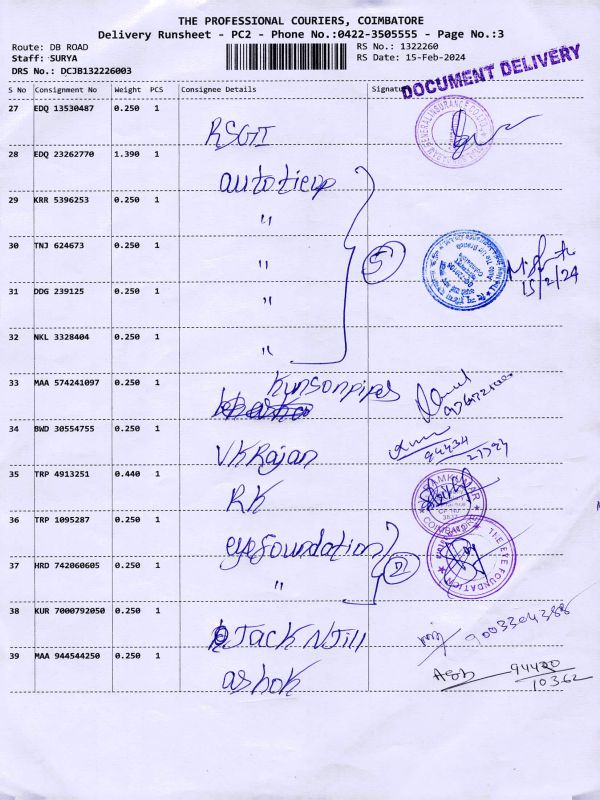 THE PROFESSIONAL COURIERS, COIMBATORE
Delivery Runsheet - PC2 - Phone No.:0422-3505555 - Page No.:3
Route: DB ROAD
Staff: SURYA
DRS No.: DCJB132226003
RS No.: 1322260
RS Date: 15-Feb-2024
DOCUMENT DELIVERY
S No Consignment No Weight PCS Consignee Details Signature
27 EDQ 13530487 0.250 1 RSGI
28 EDQ 23262770 1.390 1 autotieup
29 KRR 5396253 0.250 1 "
30 TNJ 624673 0.250 1 "
31 DDG 239125 0.250 1 "
5
15/2/24
32 NKL 3328404 0.250 1 "
33 MAA 574241097 0.250 1 Kunsonpipes
34 BWD 30554755 0.250 1 VKRajan
94434
35 TRP 4913251 0.440 1 RK
COIMBATORE
36 TRP 1095287 0.250 1 eyefoundation
2
THE EYE FOUNDATION
37 HRD 742060605 0.250 1 "
38 KUR 7000792050 0.250 1 Jack NJill
9003304388
39 MAA 944544250 0.250 1 ashok
94420
10362